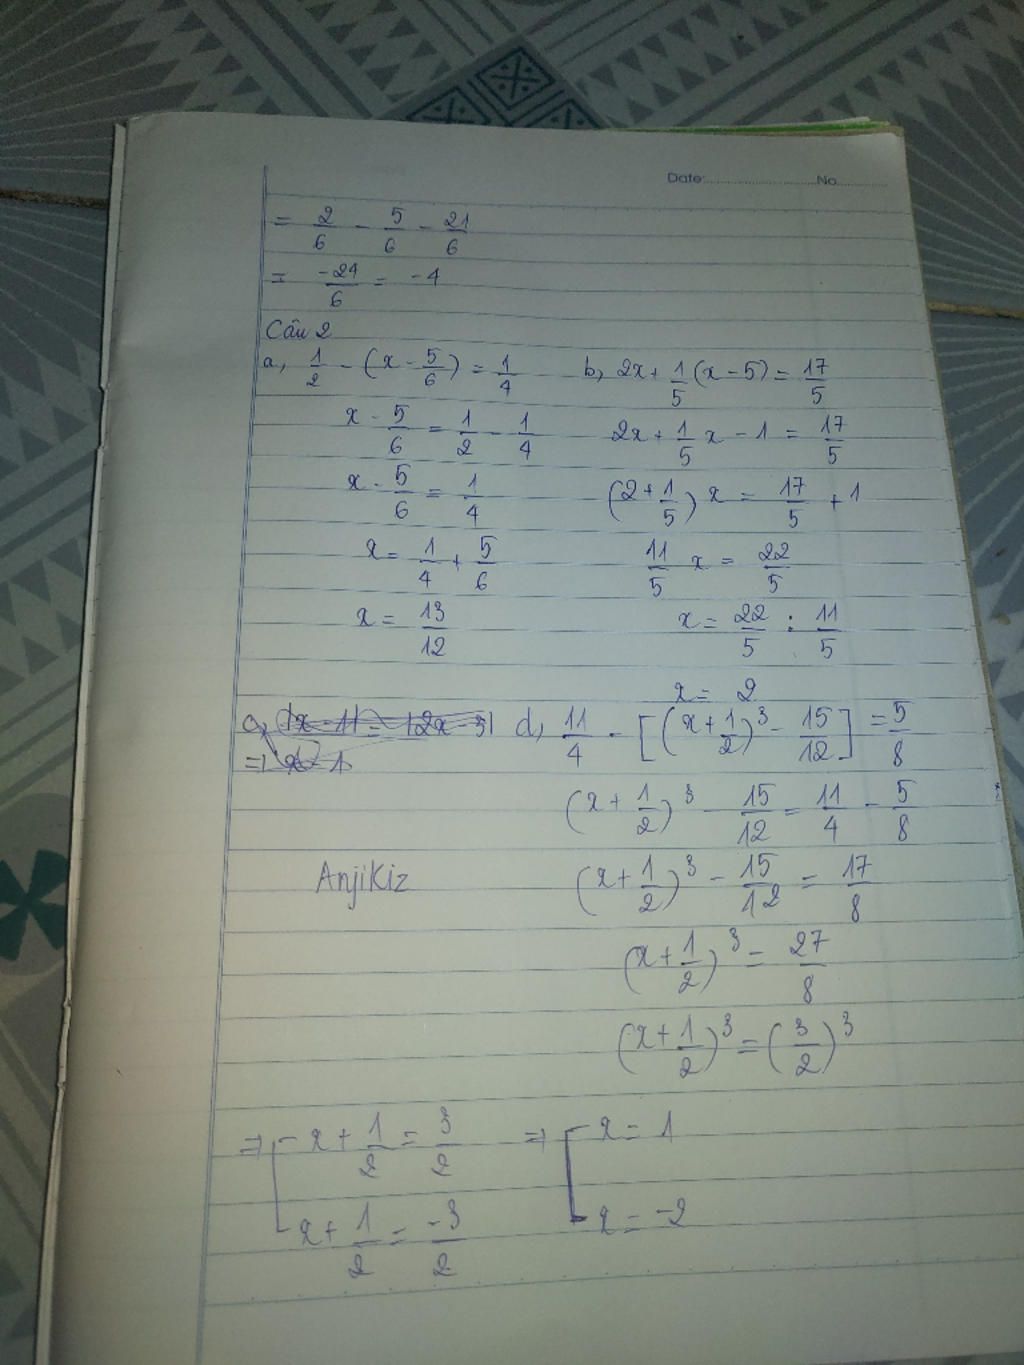 Date: No
= 2/6 - 5/6 - 21/6
= -24/6 = -4
Câu 2
a, 1/2 - (x - 5/6) = 1/4
x - 5/6 = 1/2 - 1/4
x - 5/6 = 1/4
x = 1/4 + 5/6
x = 13/12
b, 2x + 1/5 (x - 5) = 17/5
2x + 1/5 x - 1 = 17/5
(2 + 1/5) x = 17/5 + 1
11/5 x = 22/5
x = 22/5 : 11/5
x = 2
c, |x - 1| = |2x - 3|
d, 11/4 - [(x + 1/2)³ - 15/12] = 5/8
(x + 1/2)³ - 15/12 = 11/4 - 5/8
AnjiKiz
(x + 1/2)³ - 15/12 = 17/8
(x + 1/2)³ = 27/8
(x + 1/2)³ = (3/2)³
=> x + 1/2 = 3/2 => x = 1
x + 1/2 = -3/2 x = -2